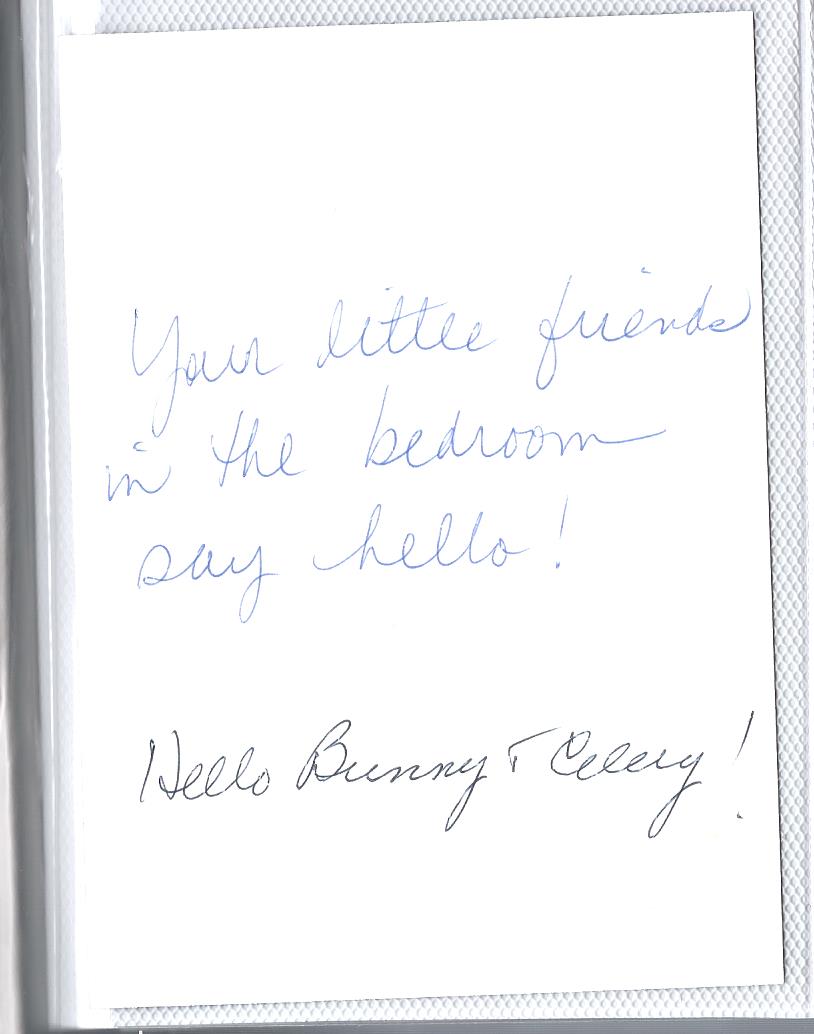 Your little friends
in the bedroom
say hello!
Hello Bunny + Celery!